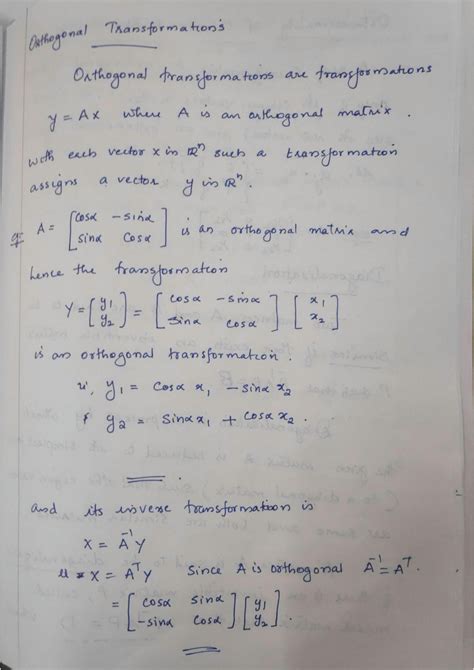 Orthogonal Transformations
Orthogonal transformations are transformations
y = Ax where A is an orthogonal matrix.
with each vector x in ℝⁿ such a transformation
assigns a vector y in ℝⁿ.
eg: A = [cosα -sinα; sinα cosα] is an orthogonal matrix and
hence the transformation
Y = [y₁; y₂] = [cosα -sinα; sinα cosα] [x₁; x₂]
is an orthogonal transformation.
ie, y₁ = cosα x₁ - sinα x₂
& y₂ = sinα x₁ + cosα x₂.
and its inverse transformation is
X = A⁻¹Y
ie X = AᵀY since A is orthogonal A⁻¹ = Aᵀ.
= [cosα sinα; -sinα cosα] [y₁; y₂].